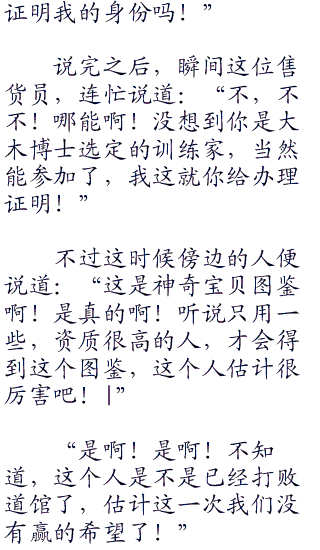 证明我的身份吗！”
说完之后，瞬间这位售
货员，连忙说道：“不，不
不！哪能啊！没想到你是大
木博士选定的训练家，当然
能参加了，我这就你给办理
证明！”
不过这时候傍边的人便
说道：“这是神奇宝贝图鉴
啊！是真的啊！听说只用一
些，资质很高的人，才会得
到这个图鉴，这个人估计很
厉害吧！|”
“是啊！是啊！不知
道，这个人是不是已经打败
道馆了，估计这一次我们没
有赢的希望了！”